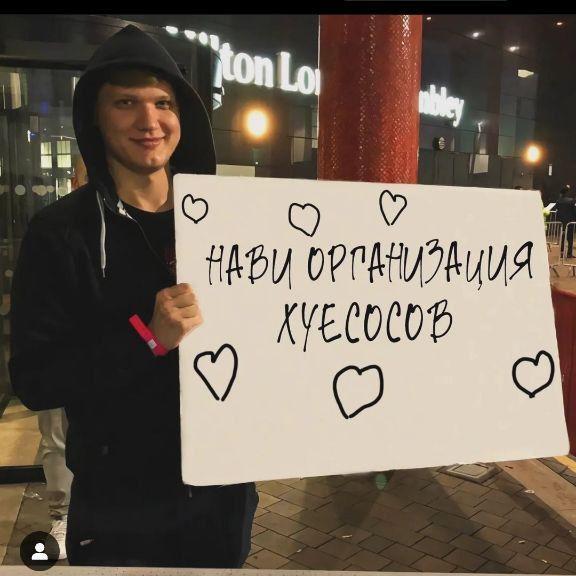 ton Lo
mbley
НАВИ ОРГАНИЗАЦИЯ
ХУЕСОСОВ